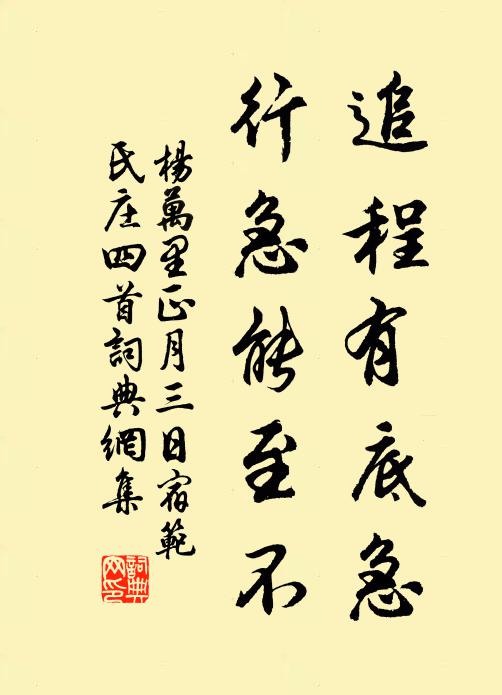 追程有底急
行急能至不
楊萬里正月三日宿範
氏庄四首詞典網集
詞典
网印